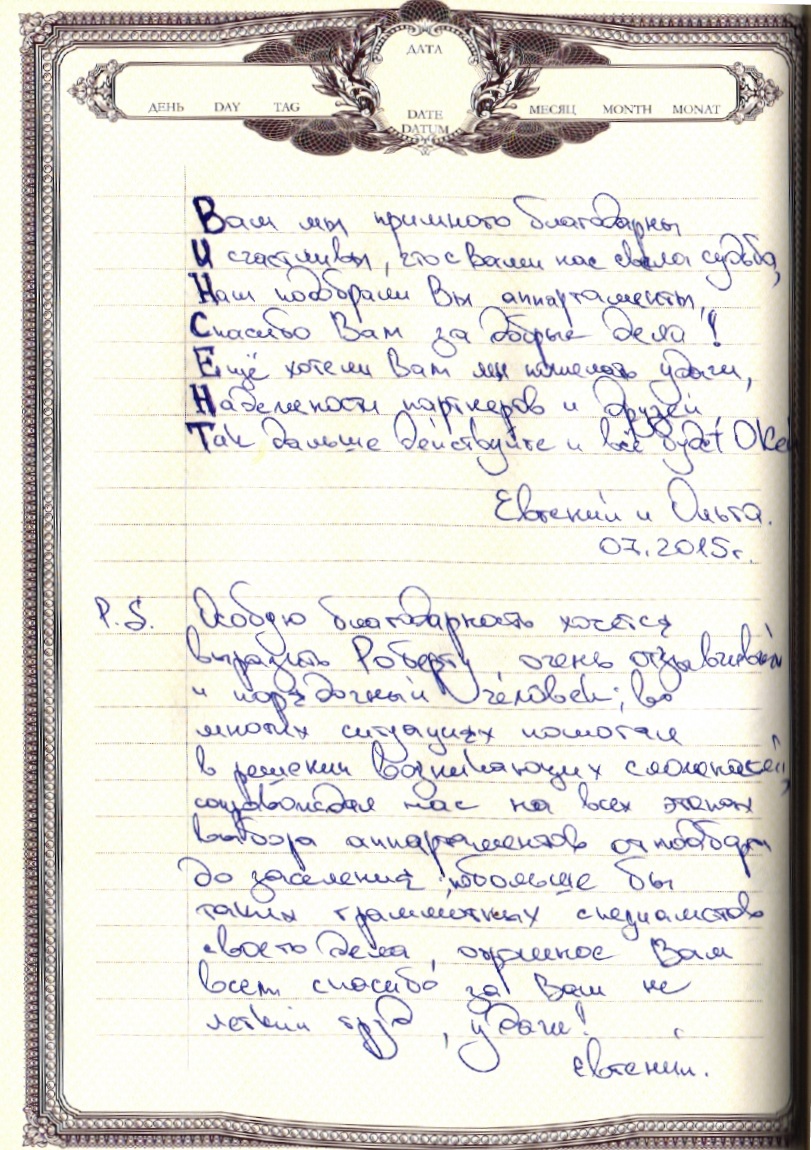 ДАТА
ДЕНЬ DAY TAG DATE МЕСЯЦ MONTH MONAT
DATUM
Вам мы примного благодарны
И счастливы, что с Вами нас свела судьба,
Нам подобрали Вы аппартаменты,
Спасибо Вам за добрые дела!
Ещё хотели Вам мы пожелать удачи,
Надежности партнеров и друзей,
Так дальше действуйте и всё будет Окей
Евгений и Ольга.
07.2015г.
P.S. Особую благодарность хочется
выразить Роберту очень отзывчивый
и порядочный человек; во
многих ситуациях помогал
в решении возникающих сложностей,
сопровождал нас на всех этапах
выбора аппартаментов от подбора
до заселения, побольше бы
таких грамотных специалистов
своего дела, огромное Вам
всем спасибо за Ваш не
легкий труд, удачи!
Евгений.